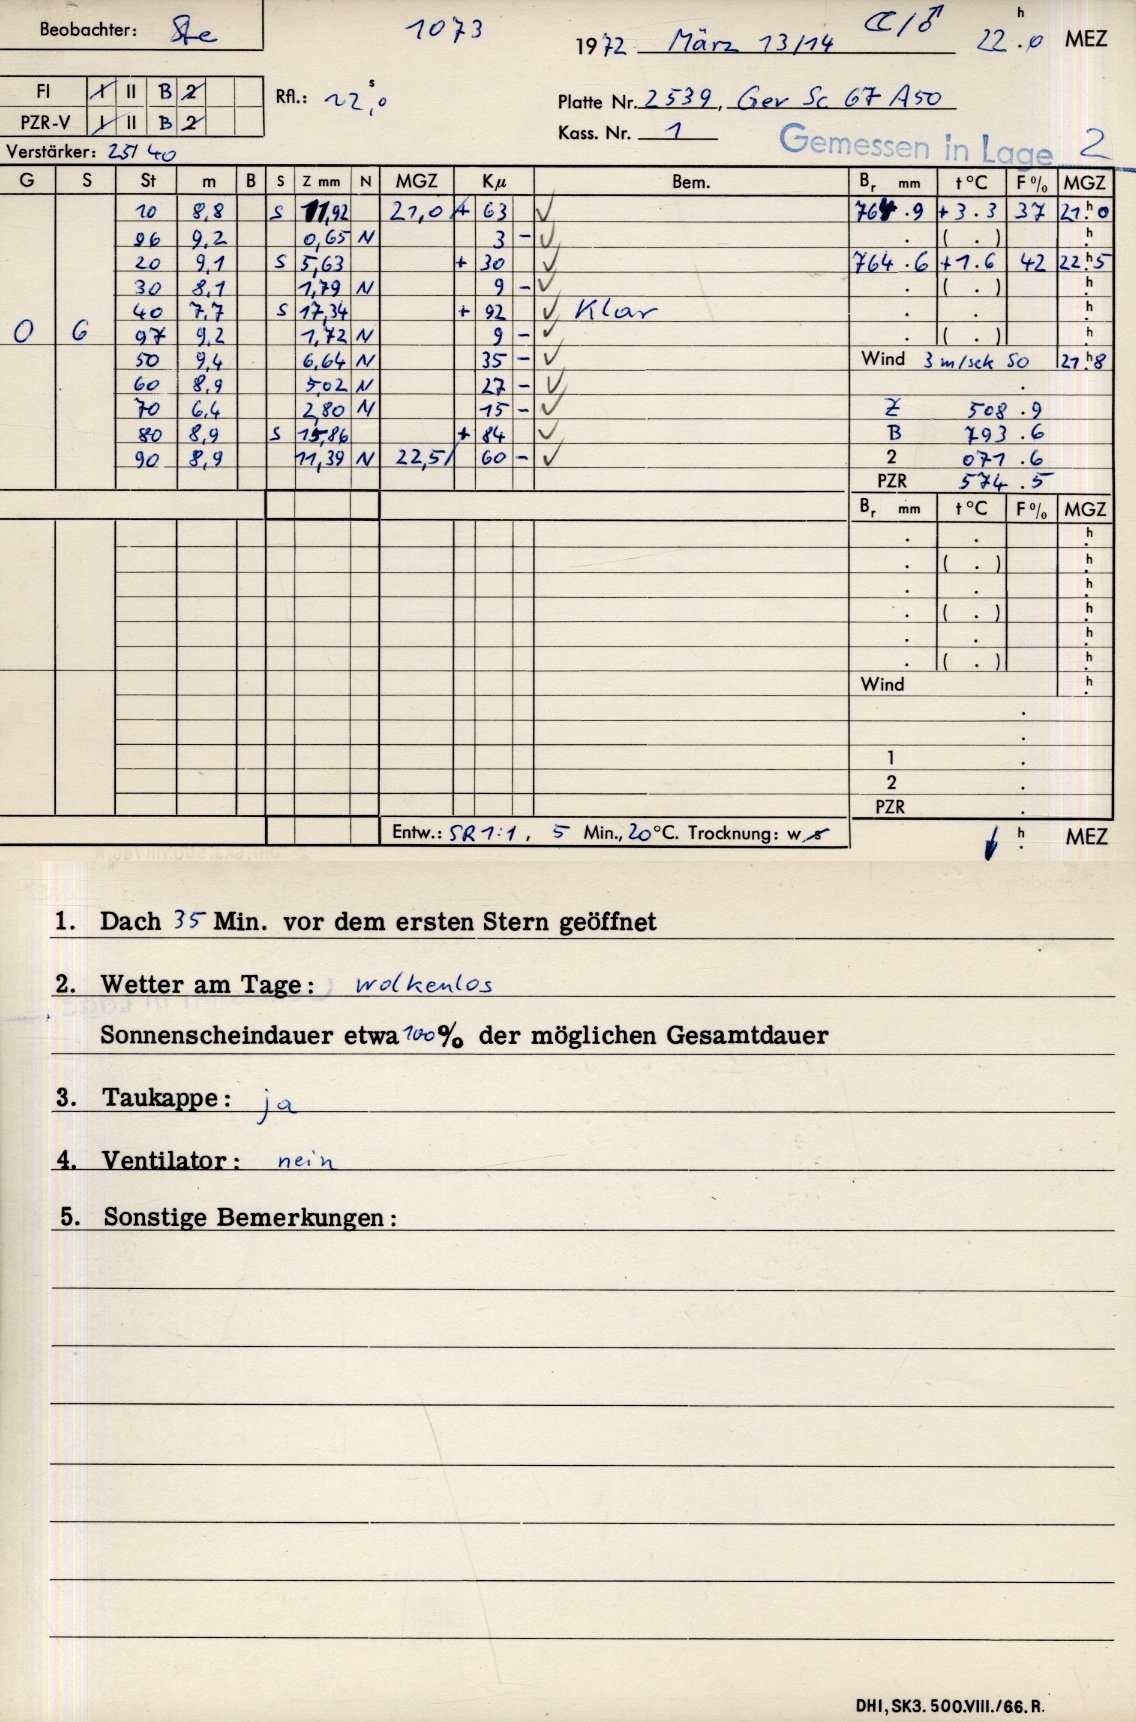 Beobachter: Ste 1073 1972 März 13/14 ☾/♂ 22.0 h MEZ
FI I II B 2 Rfl.: 22,0 s Platte Nr. 2539, Ger Sc 67 A50
PZR-V I II B 2 Kass. Nr. 1 Gemessen in Lage 2
Verstärker: 25/40
G S St m B S Z mm N MGZ Kμ Bem. Br mm t°C F% MGZ
10 8,8 S 11,92 21,0 + 63 ✓ 764.9 +3.3 37 21h.0
96 9,2 0,65 N 3 - ✓ . ( . ) h.
20 9,1 S 5,63 + 30 ✓ 764.6 +1.6 42 22h.5
30 8,1 1,79 N 9 - ✓ . ( . ) h.
40 7,7 S 17,34 + 92 ✓ Klar . . h.
0 6 97 9,2 1,72 N 9 - ✓ . ( . ) h.
50 9,4 6,64 N 35 - ✓ Wind 3 m/sek SO 21h.8
60 8,9 5,02 N 27 - ✓ .
70 6,4 2,80 N 15 - ✓ Z 508.9
80 8,9 S 15,86 + 84 ✓ B 793.6
90 8,9 11,39 N 22,5 60 - ✓ 2 071.6
PZR 574.5
Br mm t°C F% MGZ
. . h.
. ( . ) h.
. . h.
. ( . ) h.
. . h.
. ( . ) h.
Wind h.
.
.
1 .
2 .
PZR .
Entw.: SR 1:1, 5 Min., 20°C. Trocknung: w s h. MEZ
1. Dach 35 Min. vor dem ersten Stern geöffnet
2. Wetter am Tage: wolkenlos
Sonnenscheindauer etwa 100% der möglichen Gesamtdauer
3. Taukappe: ja
4. Ventilator: nein
5. Sonstige Bemerkungen:
DHI, SK3. 500.VIII./66. R.